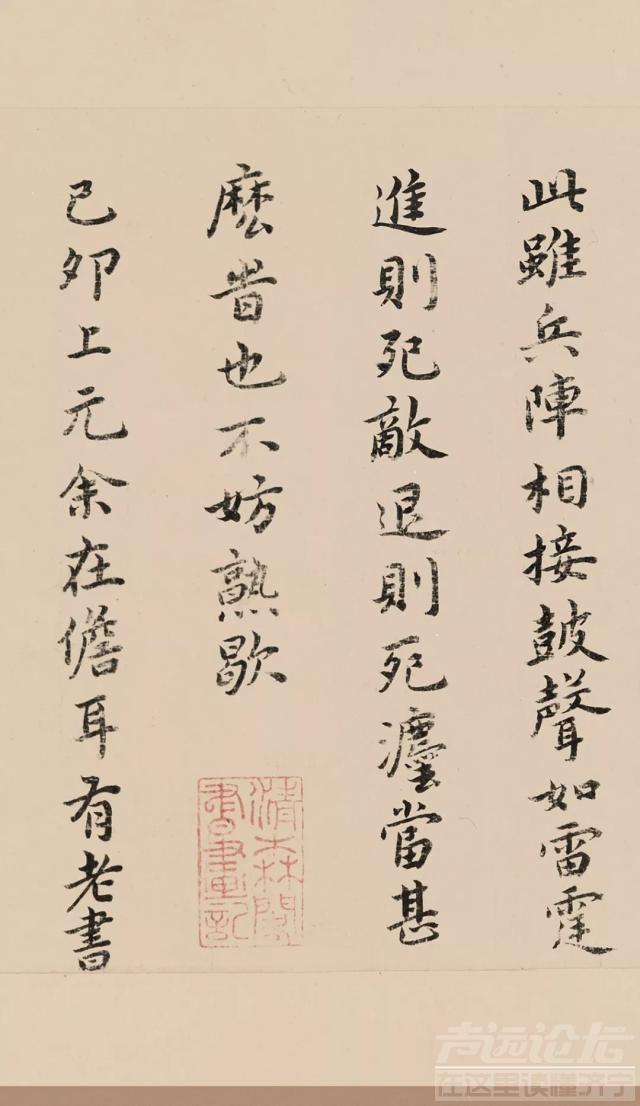 此雖兵陣相接皷聲如雷霆
進則死敵退則死灋當甚
麽旹也不妨熟歇
清森閣
書畫記
己卯上元余在儋耳有老書
声远论坛
在这里读懂济宁